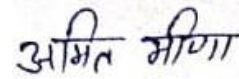 अमित मीणा